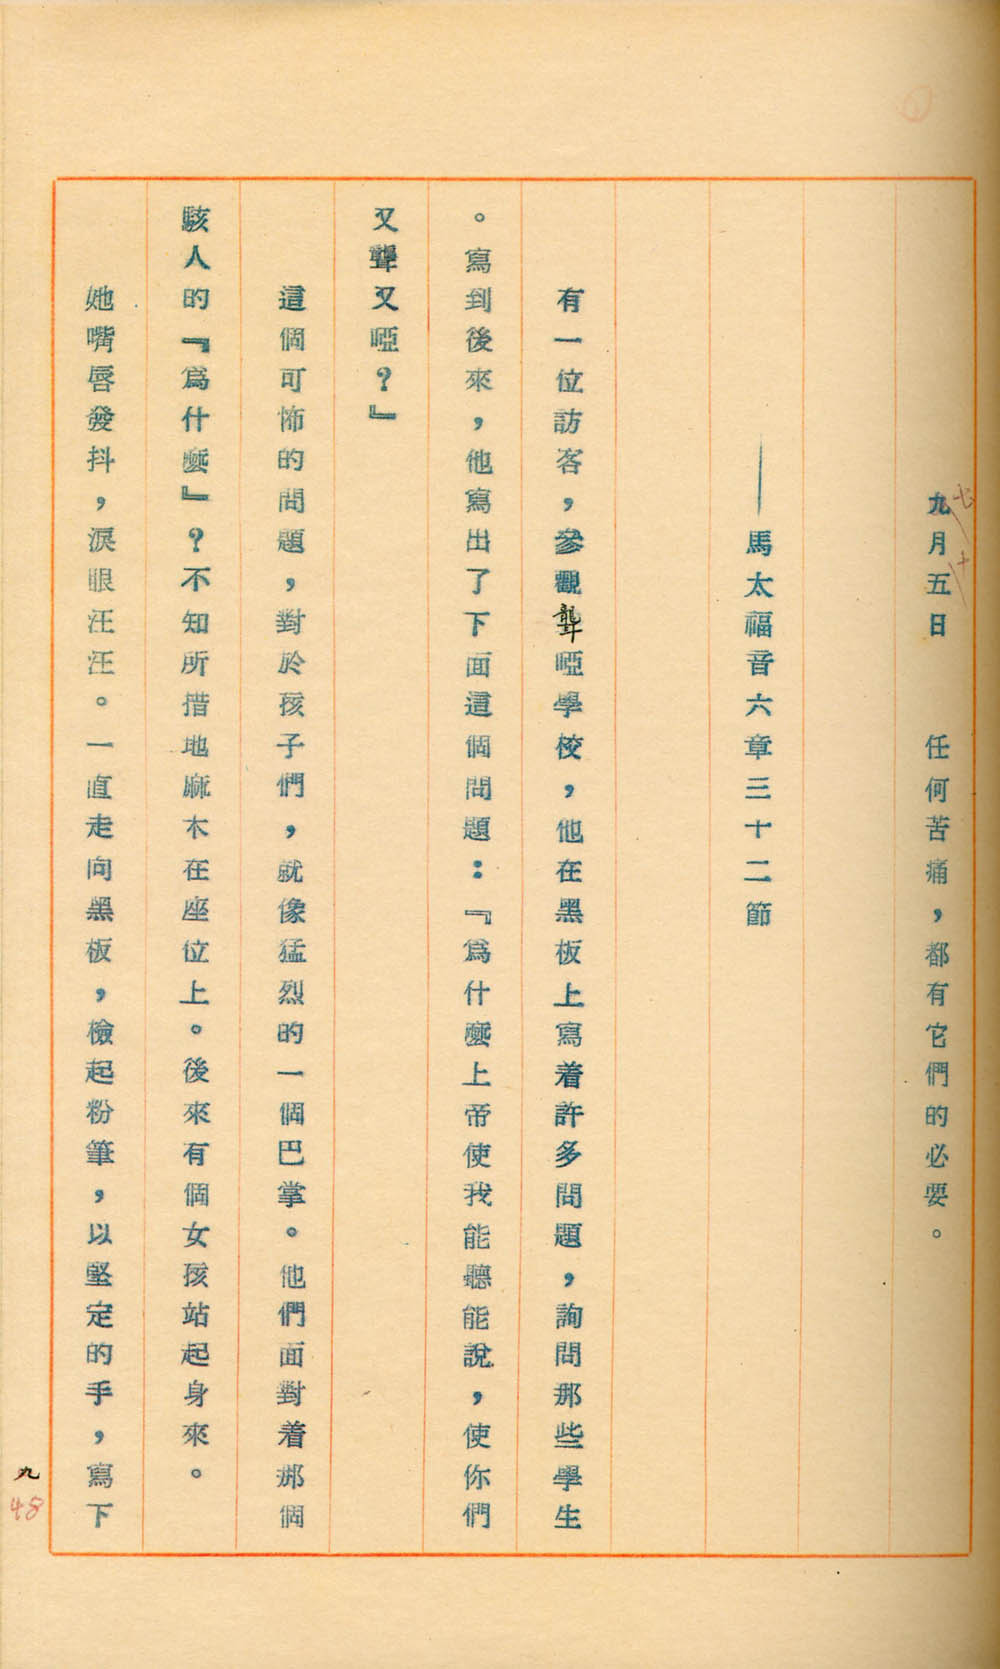 九月五日　任何苦痛，都有它們的必要。
七
十
——馬太福音六章三十二節
有一位訪客，參觀聾啞學校，他在黑板上寫着許多問題，詢問那些學生
。寫到後來，他寫出了下面這個問題：『為什麼上帝使我能聽能說，使你們
又聾又啞？』
這個可怖的問題，對於孩子們，就像猛烈的一個巴掌。他們面對着那個
駭人的『為什麼』？不知所措地麻木在座位上。後來有個女孩站起身來。
她嘴唇發抖，淚眼汪汪。一直走向黑板，檢起粉筆，以堅定的手，寫下
九
48